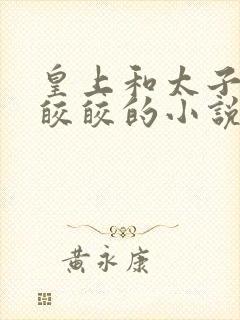 皇上和太子
皎皎的小説
黃永康